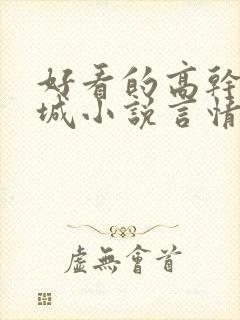 好看的高幹
城小說言情
虛無會首